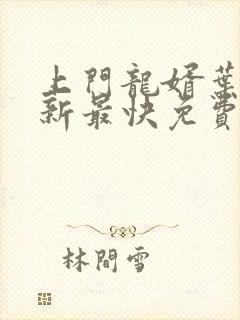 上門龍婿葉
新最快免費
林間雪